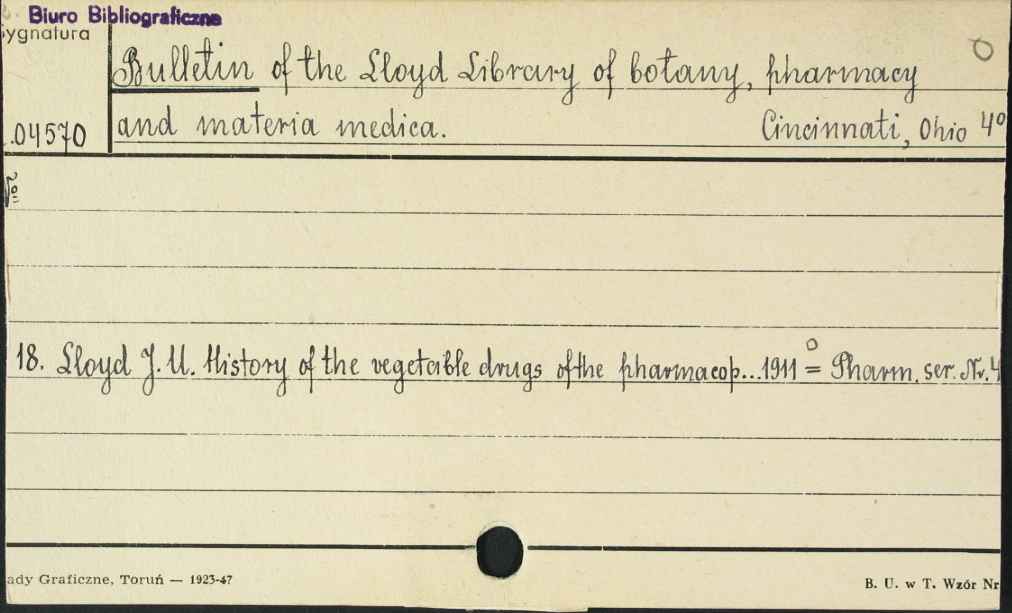 Biuro Bibliograficzne
ygnatura
Bulletin of the Lloyd Library of botany, pharmacy
.04570 and materia medica. Cincinnati, Ohio 4º
18. Lloyd J. U. History of the vegetable drugs of the pharmacop...1911 = Pharm. ser. Nr. 4
ady Graficzne, Toruń — 1923-47
B. U. w T. Wzór Nr